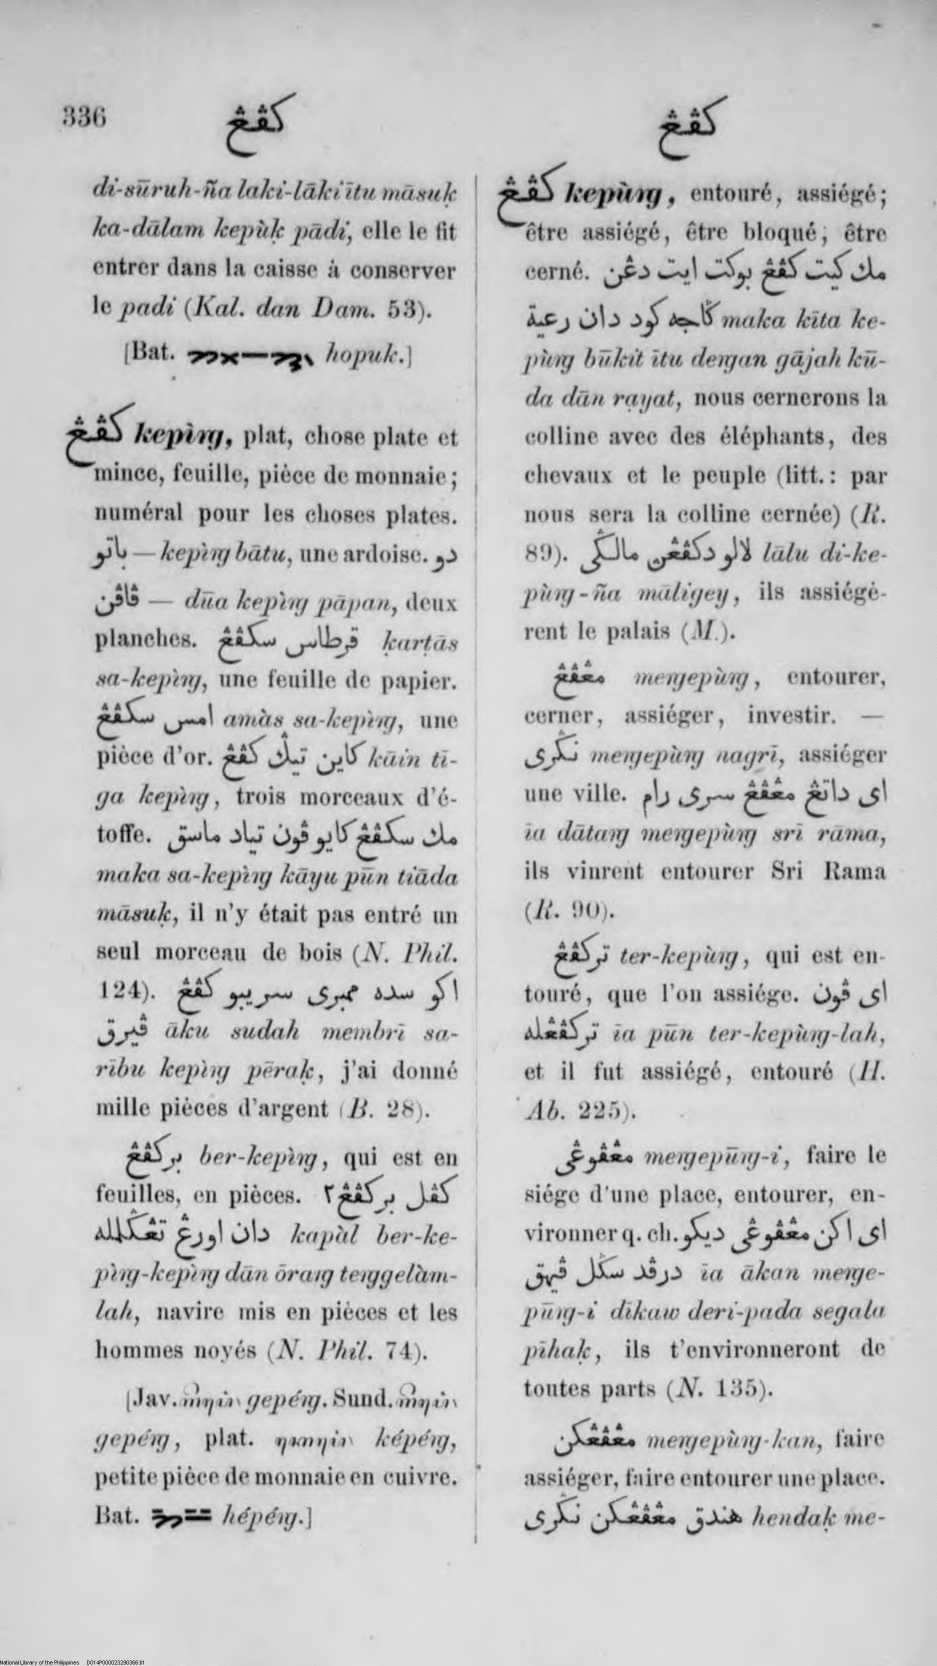 336
كڤڠ
كڤڠ
di-sūruh-ña laki-lāki ītu māsuḳ
ka-dālam kepùḳ pādi, elle le fit
entrer dans la caisse à conserver
le padi (Kal. dan Dam. 53).
[Bat. hopuk.]
كڤڠ kepìrg, plat, chose plate et
mince, feuille, pièce de monnaie;
numéral pour les choses plates.
باتو — kepìrg bātu, une ardoise. دو
ڤاڤن — dūa kepìrg pāpan, deux
planches. قرطاس سكڤڠ ḳarṭās
sa-kepìrg, une feuille de papier.
امس سكڤڠ amàs sa-kepìrg, une
pièce d'or. كاين تيݢ كڤڠ kāin tī-
ga kepìrg, trois morceaux d'é-
toffe. مك سكڤڠ كايو ڤون تياد ماسق
maka sa-kepìrg kāyu pūn tiāda
māsuḳ, il n'y était pas entré un
seul morceau de bois (N. Phil.
124). اكو سده ممبرى سريبو كڤڠ
ڤيرق āku sudah membrī sa-
rību kepìrg pēraḳ, j'ai donné
mille pièces d'argent (B. 28).
بركڤڠ ber-kepìrg, qui est en
feuilles, en pièces. كڤل بركڤڠ٢
دان اورڠ تڠݢلمله kapàl ber-ke-
pìrg-kepìrg dān ōrarg terggelàm-
lah, navire mis en pièces et les
hommes noyés (N. Phil. 74).
[Jav. gepérg. Sund.
gepérg, plat. képérg,
petite pièce de monnaie en cuivre.
Bat. hépérg.]
كڤڠ kepùrg, entouré, assiégé;
être assiégé, être bloqué; être
cerné. مك كيت كڤڠ بوكت ايت دڠن
ݢاجه كود دان رعية maka kīta ke-
pùrg būkit ītu dergan gājah kū-
da dān rayat, nous cernerons la
colline avec des éléphants, des
chevaux et le peuple (litt.: par
nous sera la colline cernée) (R.
89). لالو دكڤڠن مالݢى lālu di-ke-
pùrg-ña māligey, ils assiégè-
rent le palais (M.).
مڠڤڠ mergepùrg, entourer,
cerner, assiéger, investir. —
نݢرى mergepùrg nagrī, assiéger
une ville. اى داتڠ مڠڤڠ سرى رام
īa dātarg mergepùrg srī rāma,
ils vinrent entourer Sri Rama
(R. 90).
تركڤڠ ter-kepùrg, qui est en-
touré, que l'on assiége. اى ڤون
تركڤڠله īa pūn ter-kepùrg-lah,
et il fut assiégé, entouré (H.
Ab. 225).
مڠڤوڠى mergepūrg-i, faire le
siége d'une place, entourer, en-
vironner q. ch. اى اكن مڠڤوڠى ديكو
درڤد سݢل ڤيهق īa ākan merge-
pūrg-i dīkaw deri-pada segala
pīhaḳ, ils t'environneront de
toutes parts (N. 135).
مڠڤڠكن mergepùrg-kan, faire
assiéger, faire entourer une place.
هندق مڠڤڠكن نݢرى hendaḳ me-
National Library of the Philippines